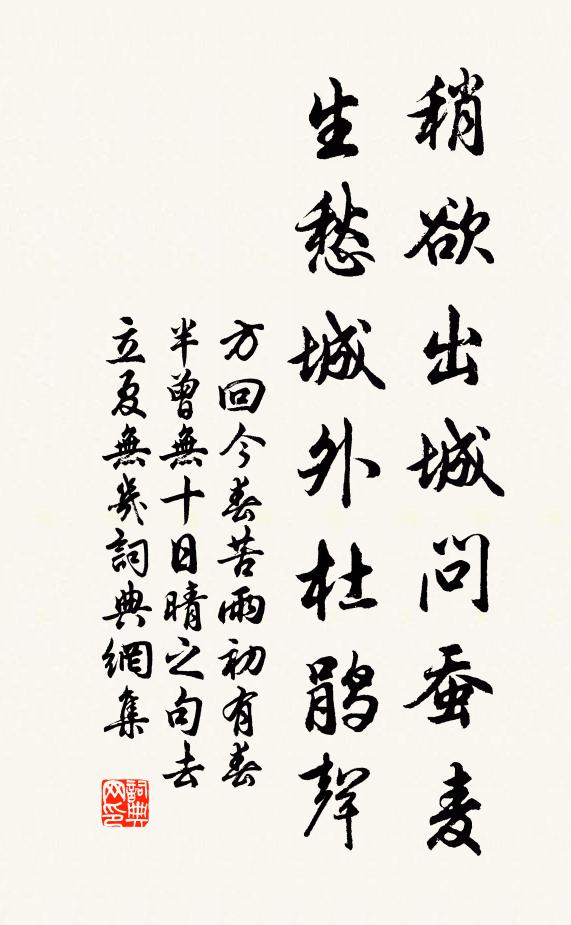 稍欲出城问蚕麦
生愁城外杜鹃聲
方回今春苦雨初有春
半曾無十日晴之句去
立夏無幾詞典網集
詞典
网印